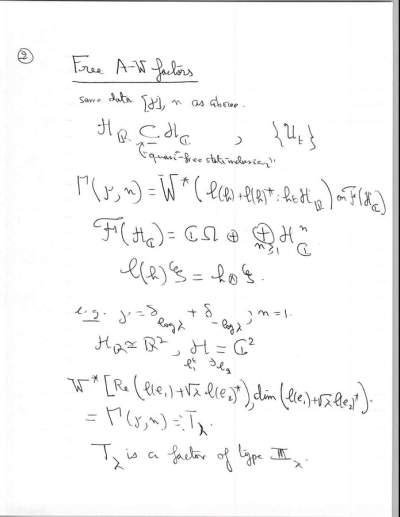 ②
Free A-W factors
same data [γ], n as above.
H_ℝ ⊆ H_ℂ , {U_t}
("quasi-free state inclusion")
Γ(γ, n) = W*(ℓ(h)+ℓ(h)* : h∈H_ℝ) on F(H_ℂ)
F(H_ℂ) = ℂΩ ⊕ ⊕_{n≥1} H_ℂ^n
ℓ(h)ξ = h⊗ξ.
e.g. γ = δ_{log λ} + δ_{-log λ}, n=1.
H_ℝ ≃ ℝ², H = ℂ²
W*[Re(ℓ(e₁)+√λ ℓ(e₂)*), dim(ℓ(e₁)+√λ ℓ(e₂)*)].
= Γ(γ, n) =: T_λ.
T_λ is a factor of type III_λ.